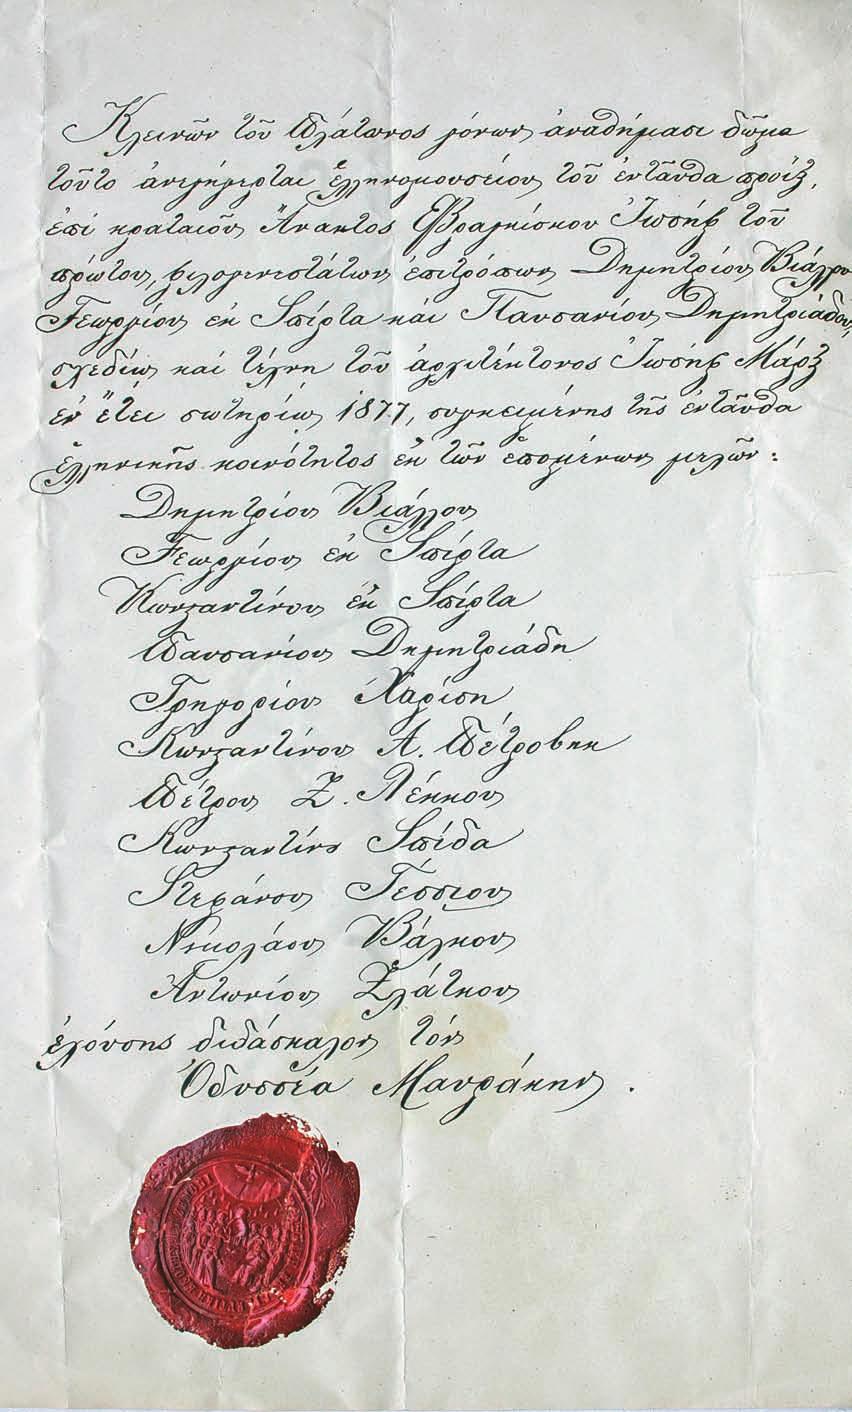 Κλεινῶν τοῦ Πλάτωνος γόνων ἀναθήμασι δῶμα
τοῦτο ἀνεγήγερται ἑλληνομουσείου τοῦ ἐντᾶυθα προὶξ,
ἐπὶ κραταιοῦ Ἄνακτος Φραγκίσκου Ἰωσὴφ τοῦ
πρώτου, φιλογενεστάτων ἐπιτρόπων Δημητρίου Βιάλλου
Γεωργίου ἐκ Σπίρτα κάι Παυσανίου Δημητριάδου,
σχεδίῳ καὶ τέχνῃ τοῦ ἀρχιτέκτονος Ἰωσὴφ Μάρξ
ἐν ἔτει σωτηρίῳ 1877, συγκειμένης τῆς ἐντᾶυθα
ἑλληνικῆς κοινότητος ἐκ τῶν ἑπομένων μελῶν:
Δημητρίου Βιάλλου
Γεωργίου ἐκ Σπίρτα
Κωνσταντίνου ἐκ Σπίρτα
Παυσανίου Δημητριάδη
Γρηγορίου Χαρίση
Κωνσταντίνου Α. Πέτροβηκ
Πέτρου Ζ. Λέκκου
Κωνσταντίνου Σπίδα
Στεφάνου Γέσσιου
Νικολάου Βάλκου
Ἀντωνίου Ζλάτκου
ἐχόυσης διδάσκαλον τόν
Ὀδυσσέα Μαυράκην.